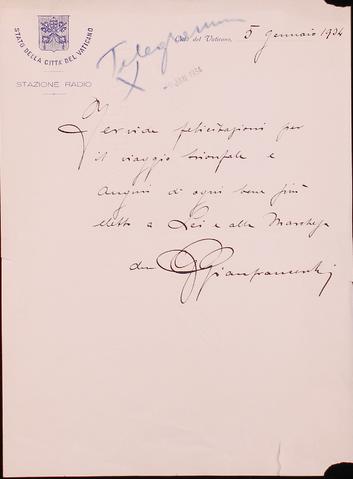 STATO DELLA CITTA' DEL VATICANO
STAZIONE RADIO
Telegramma
Città del Vaticano, 5 Gennaio 1934
JAN 1934
Fervide felicitazioni per
il viaggio trionfale e
auguri di ogni bene più
eletto a Lei e alla Marchesa
da Gianfranceschi